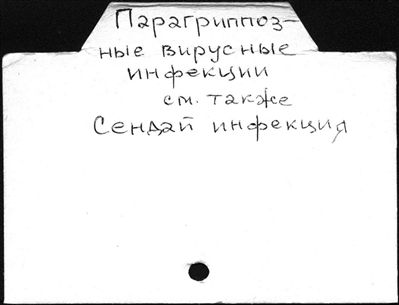 Парагриппоз-
ные вирусные
инфекции
см. также
Сендай инфекция